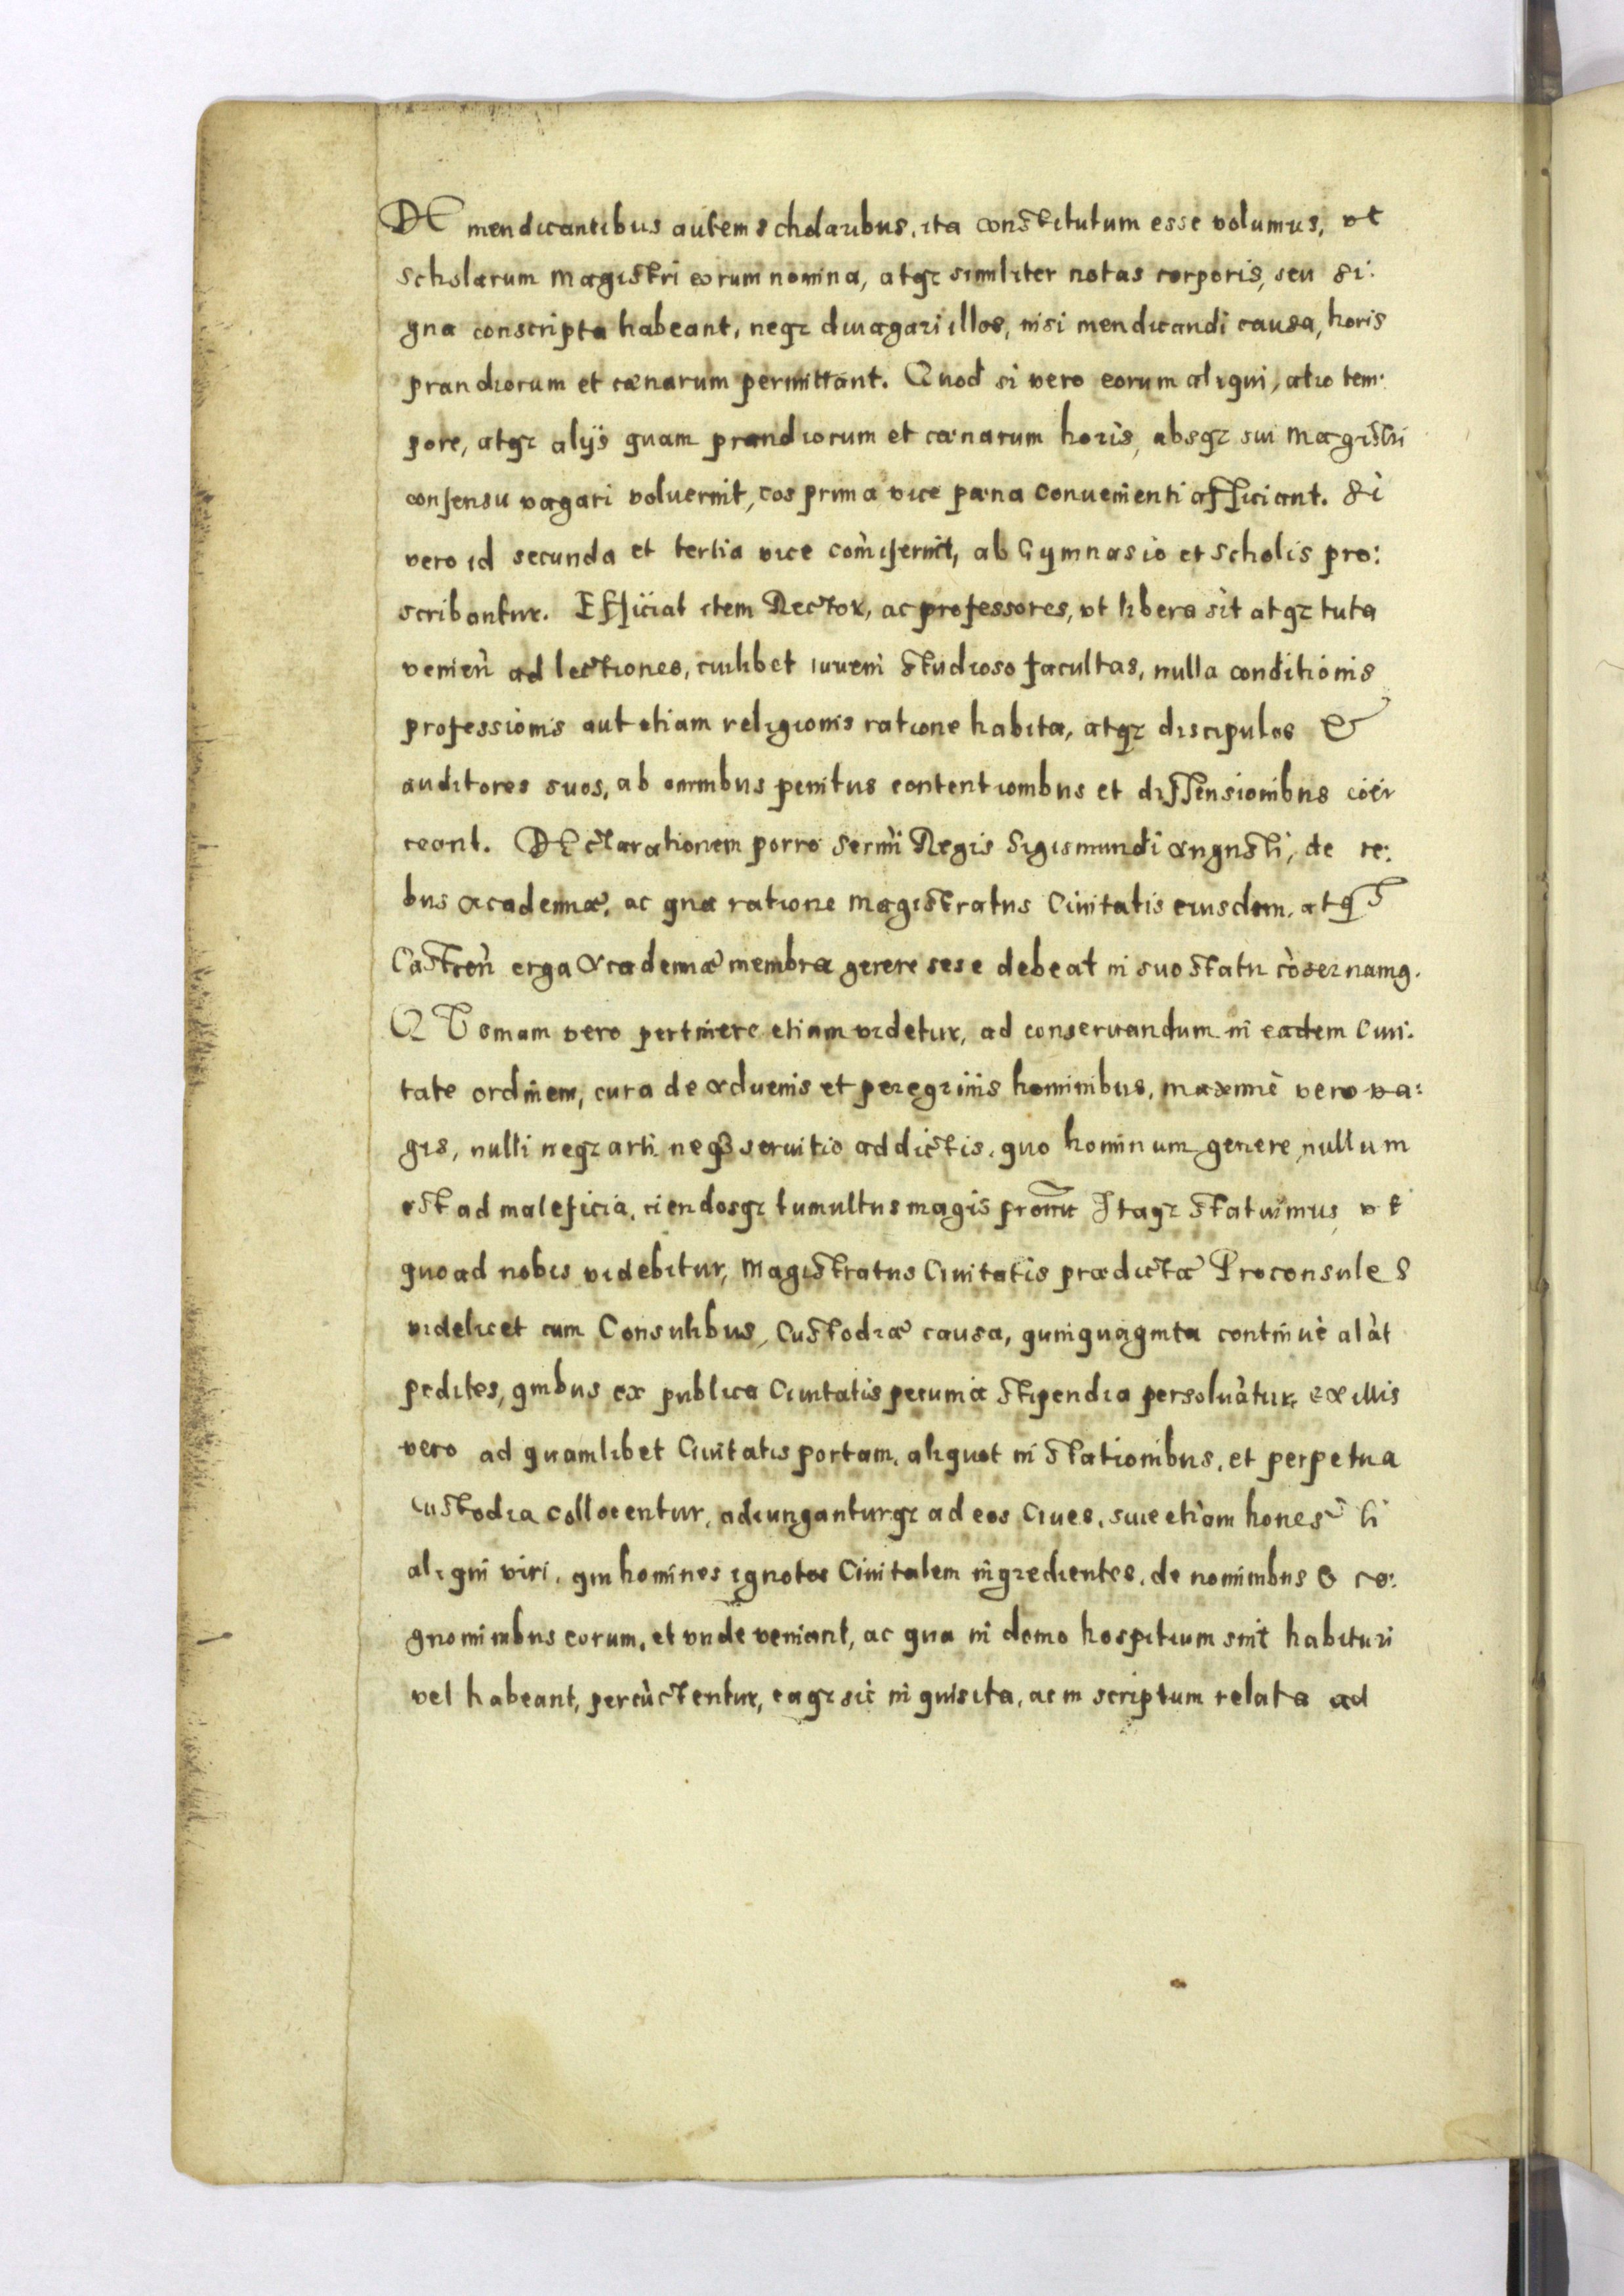 DE mendicantibus autem scholaribus, ita constitutum esse volumus, vt
scholarum magistri eorum nomina, atqz similiter notas corporis, seu si:
gna conscripta habeant, neqz diuagari illos, nisi mendicandi causa, horis
prandiorum et cænarum permittant. Quod si vero eorum aliqui, alio tem:
pore, atqz alijs quam prandiorum et cænarum horis, absqz sui magistri
consensu vagari voluerint, eos prima vice pæna conuenienti afficiant. Si
vero id secunda et tertia vice com̃iserint, ab Gymnasio et scholis pro:
scribantur. Efficiat item Rector, ac professores, vt libera sit atqz tuta
venien̄ ad lectiones, cuilibet iuueni studioso facultas, nulla conditionis
professionis aut etiam religionis ratione habita, atqz discipulos &
auditores suos, ab omnibus penitus contentionibus et dissensionibus coer
ceant. DEclarationem porro serm̃i Regis Sigismundi augusti, de re:
bus academiæ, ac qua ratione magistratus Ciuitatis eiusdem, atqz
Castren̄ erga academiæ membra gerere sese debeat in suo statu cõseruamq.
QUoniam vero pertinere etiam videtur, ad conseruandum in eadem Ciui:
tate ordinem, cura de aduenis et peregrinis hominibus, maximè vero va:
gis, nulli neqz arti neqz seruitio addictis, quo hominum genere, nullum
est ad maleficia, ciendosqz tumultus magis pronũ Itaqz statuimus, vt
quoad nobis videbitur, magistratus Ciuitatis prædictæ Proconsules
videlicet cum Consulibus, Custodiæ causa, quinquaginta continuè alãt
pedites, quibus ex publica Ciuitatis pecunia stipendia persoluãtur, ex illis
vero ad quamlibet Ciuitatis portam, aliquot in stationibus, et perpetua
custodia collocentur, adiunganturqz ad eos Ciues, siue etiam honesti
aliqui viri, qui homines ignotos Ciuitatem ingredientes, de nominibus & co:
gnominibus eorum, et vnde veniant, ac qua in domo hospitium sint habituri
vel habeant, percũctentur, eaqz sic inquisita, ac in scriptum relata ad